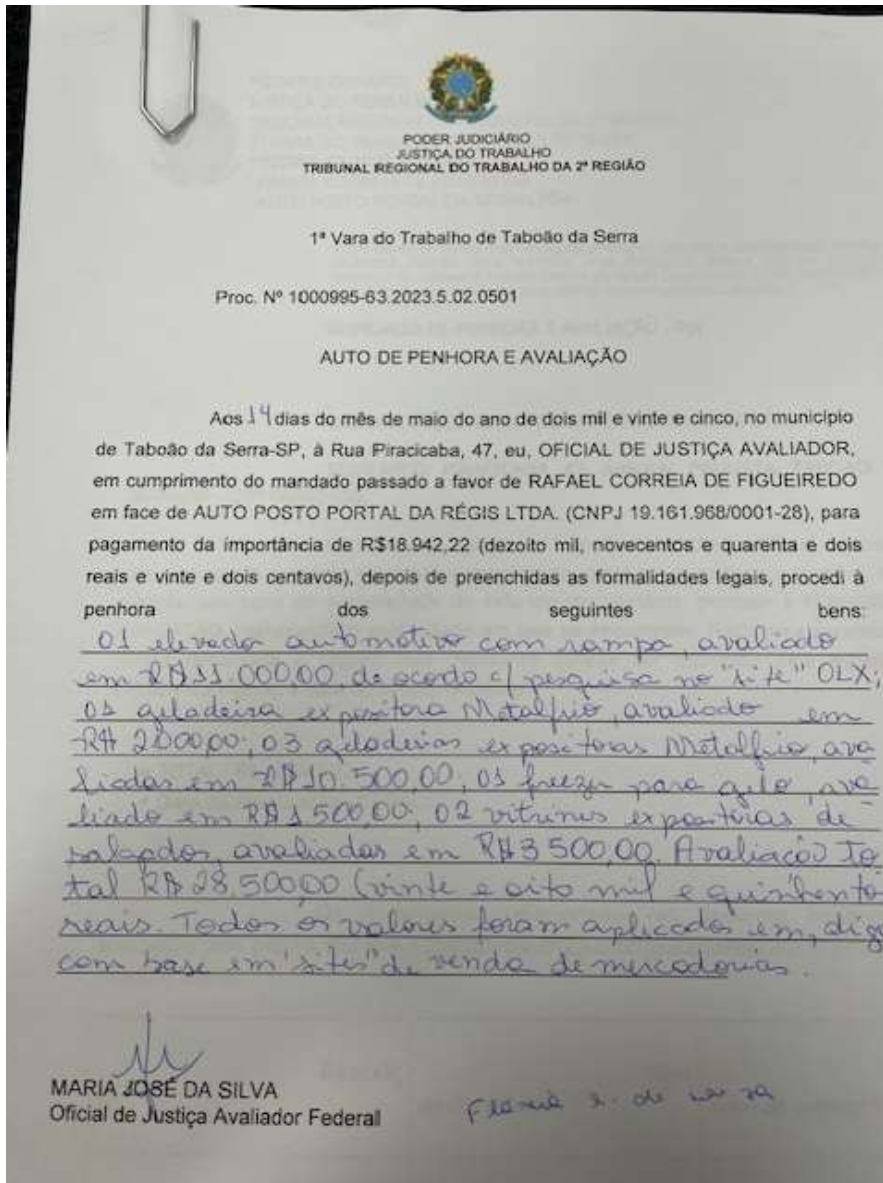 PODER JUDICIÁRIO
JUSTIÇA DO TRABALHO
TRIBUNAL REGIONAL DO TRABALHO DA 2ª REGIÃO
1ª Vara do Trabalho de Taboão da Serra
Proc. Nº 1000995-63.2023.5.02.0501
AUTO DE PENHORA E AVALIAÇÃO
Aos 14 dias do mês de maio do ano de dois mil e vinte e cinco, no município
de Taboão da Serra-SP, à Rua Piracicaba, 47, eu, OFICIAL DE JUSTIÇA AVALIADOR,
em cumprimento do mandado passado a favor de RAFAEL CORREIA DE FIGUEIREDO
em face de AUTO POSTO PORTAL DA RÉGIS LTDA. (CNPJ 19.161.968/0001-28), para
pagamento da importância de R$18.942,22 (dezoito mil, novecentos e quarenta e dois
reais e vinte e dois centavos), depois de preenchidas as formalidades legais, procedi à
penhora dos seguintes bens:
01 elevador automotivo com rampa, avaliado
em R$11.000,00, de acordo c/ pesquisa no "site" OLX;
01 geladeira expositora Metalfrio, avaliado em
R$ 2.000,00; 03 geladeiras expositoras Metalfrio, ava
liadas em R$10.500,00, 01 freezer para gelo, ava
liado em R$1.500,00, 02 vitrines expositoras de
salgados, avaliadas em R$3.500,00. Avaliação To
tal R$ 28.500,00 (vinte e oito mil e quinhento
reais. Todos os valores foram aplicados em, digo
com base em "sites" de venda de mercadorias.
MARIA JOSÉ DA SILVA
Oficial de Justiça Avaliador Federal